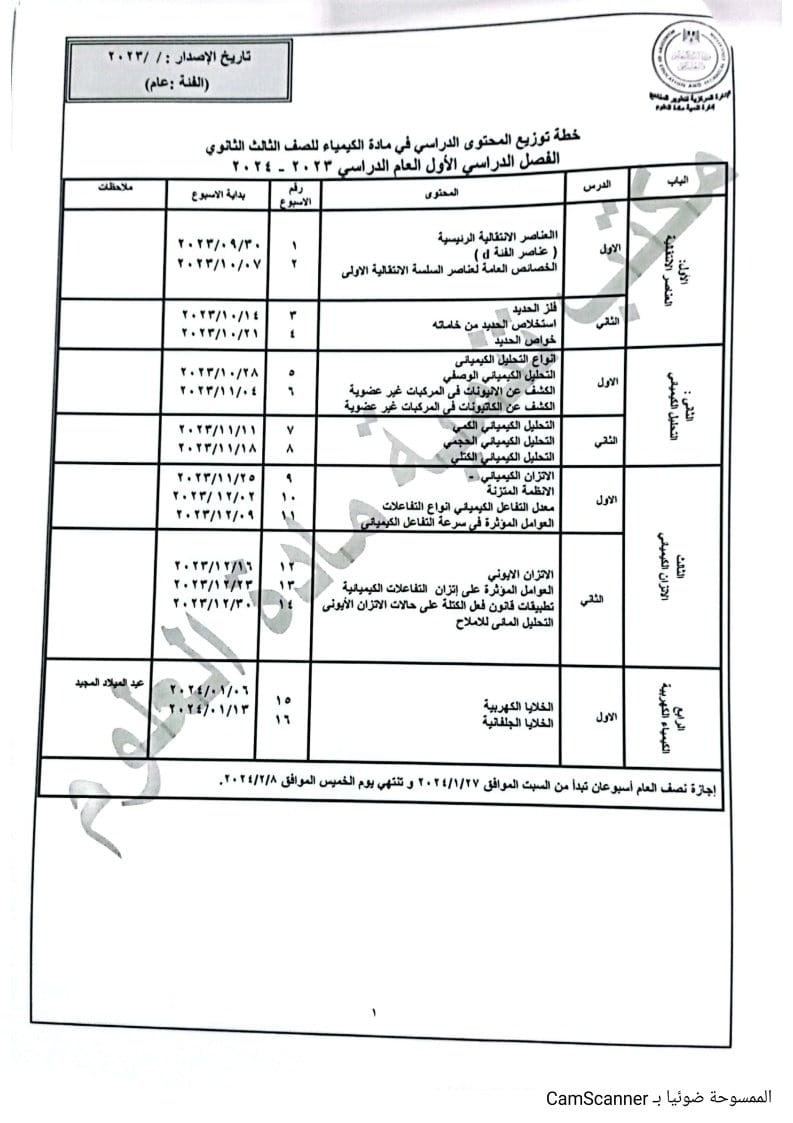 تاريخ الإصدار : / /٢٠٢٣
(الفئة :عام)
الإدارة المركزية لتطوير المناهج
إدارة تنمية مادة العلوم
خطة توزيع المحتوى الدراسي في مادة الكيمياء للصف الثالث الثانوي
الفصل الدراسي الأول العام الدراسي ٢٠٢٣ - ٢٠٢٤
الباب الدرس المحتوى رقم الاسبوع بداية الاسبوع ملاحظات
الأول: العناصر الانتقالية
الاول
العناصر الانتقالية الرئيسية
( عناصر الفئة d )
الخصائص العامة لعناصر السلسة الانتقالية الاولى
١ ٢٠٢٣/٠٩/٣٠
٢ ٢٠٢٣/١٠/٠٧
الثاني
فلز الحديد
استخلاص الحديد من خاماته
خواص الحديد
٣ ٢٠٢٣/١٠/١٤
٤ ٢٠٢٣/١٠/٢١
الثاني : التحليل الكيميائي
الاول
انواع التحليل الكيميائى
التحليل الكيميائي الوصفي
الكشف عن الانيونات فى المركبات غير عضوية
الكشف عن الكاتيونات فى المركبات غير عضوية
٥ ٢٠٢٣/١٠/٢٨
٦ ٢٠٢٣/١١/٠٤
الثاني
التحليل الكيميائي الكمي
التحليل الكيميائي الحجمي
التحليل الكيميائي الكتلي
٧ ٢٠٢٣/١١/١١
٨ ٢٠٢٣/١١/١٨
الثالث الاتزان الكيميائي
الاول
الاتزان الكيميائي -
الانظمة المتزنة
معدل التفاعل الكيميائي انواع التفاعلات
العوامل المؤثرة في سرعة التفاعل الكيميائي
٩ ٢٠٢٣/١١/٢٥
١٠ ٢٠٢٣/١٢/٠٢
١١ ٢٠٢٣/١٢/٠٩
الثاني
الاتزان الايوني
العوامل المؤثرة على إتزان التفاعلات الكيميائية
تطبيقات قانون فعل الكتلة على حالات الاتزان الأيونى
التحليل المائى للاملاح
١٢ ٢٠٢٣/١٢/١٦
١٣ ٢٠٢٣/١٢/٢٣
١٤ ٢٠٢٣/١٢/٣٠
الرابع الكيمياء الكهربية
الاول
الخلايا الكهربية
الخلايا الجلفانية
١٥ ٢٠٢٤/٠١/٠٦ عيد الميلاد المجيد
١٦ ٢٠٢٤/٠١/١٣
إجازة نصف العام أسبوعان تبدأ من السبت الموافق ٢٠٢٤/١/٢٧ و تنتهي يوم الخميس الموافق ٢٠٢٤/٢/٨.
مكتب تنمية مادة العلوم
١
الممسوحة ضوئيا بـ CamScanner